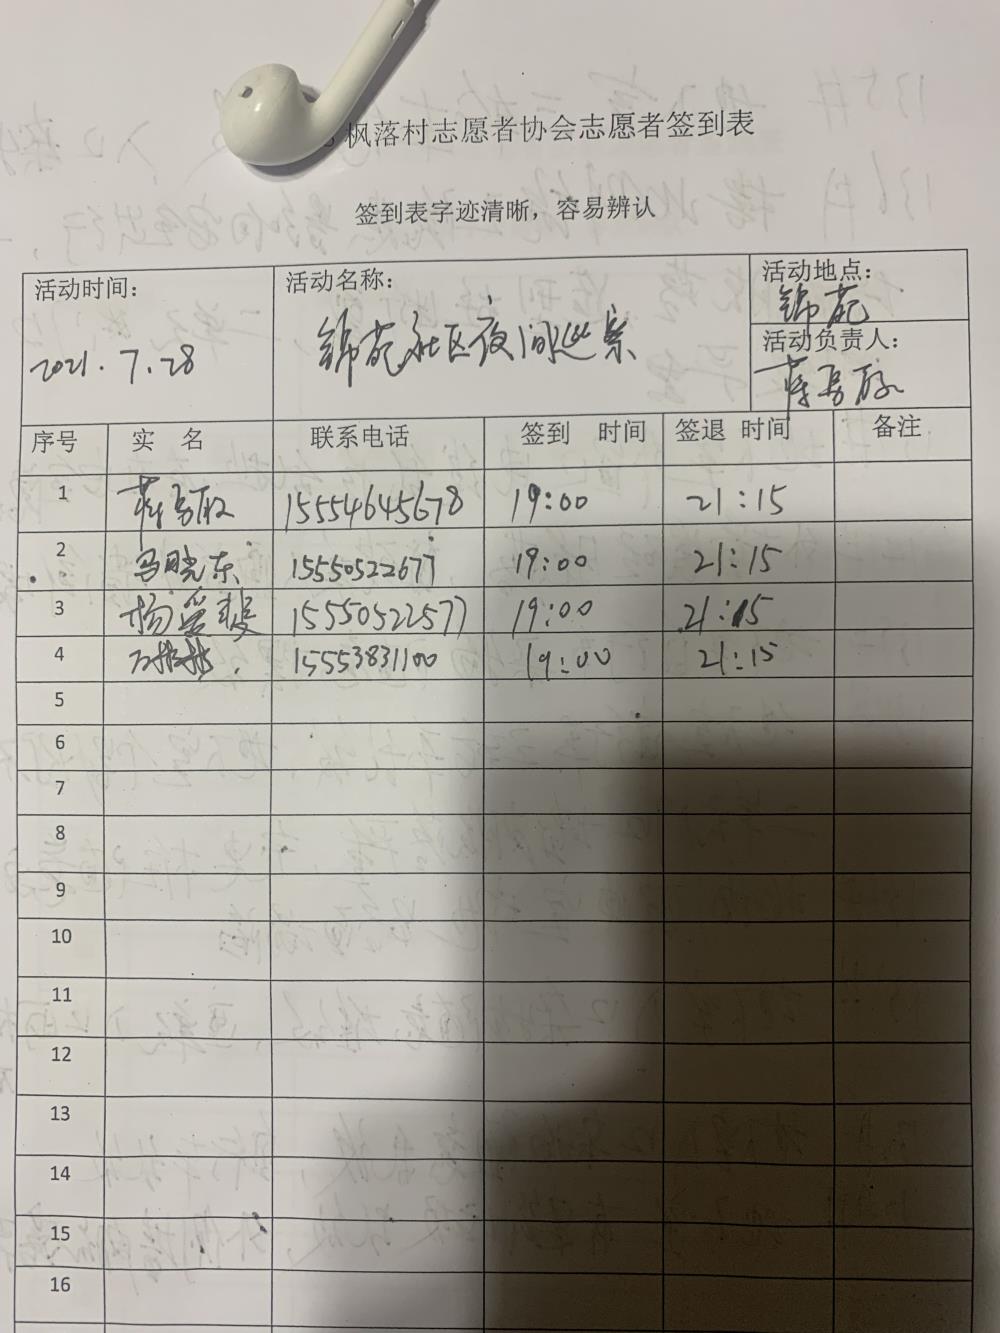 枫落村志愿者协会志愿者签到表
签到表字迹清晰，容易辨认
活动时间： 活动名称： 活动地点：
2021.7.28 锦苑社区夜间巡察 锦苑
活动负责人：
序号 实 名 联系电话 签到 时间 签退 时间 备注
1 15554645678 19:00 21:15
2 马晓东 15550522677 19:00 21:15
3 杨爱斐 15550522577 19:00 21:15
4 15553831100 19:00 21:15
5
6
7
8
9
10
11
12
13
14
15
16